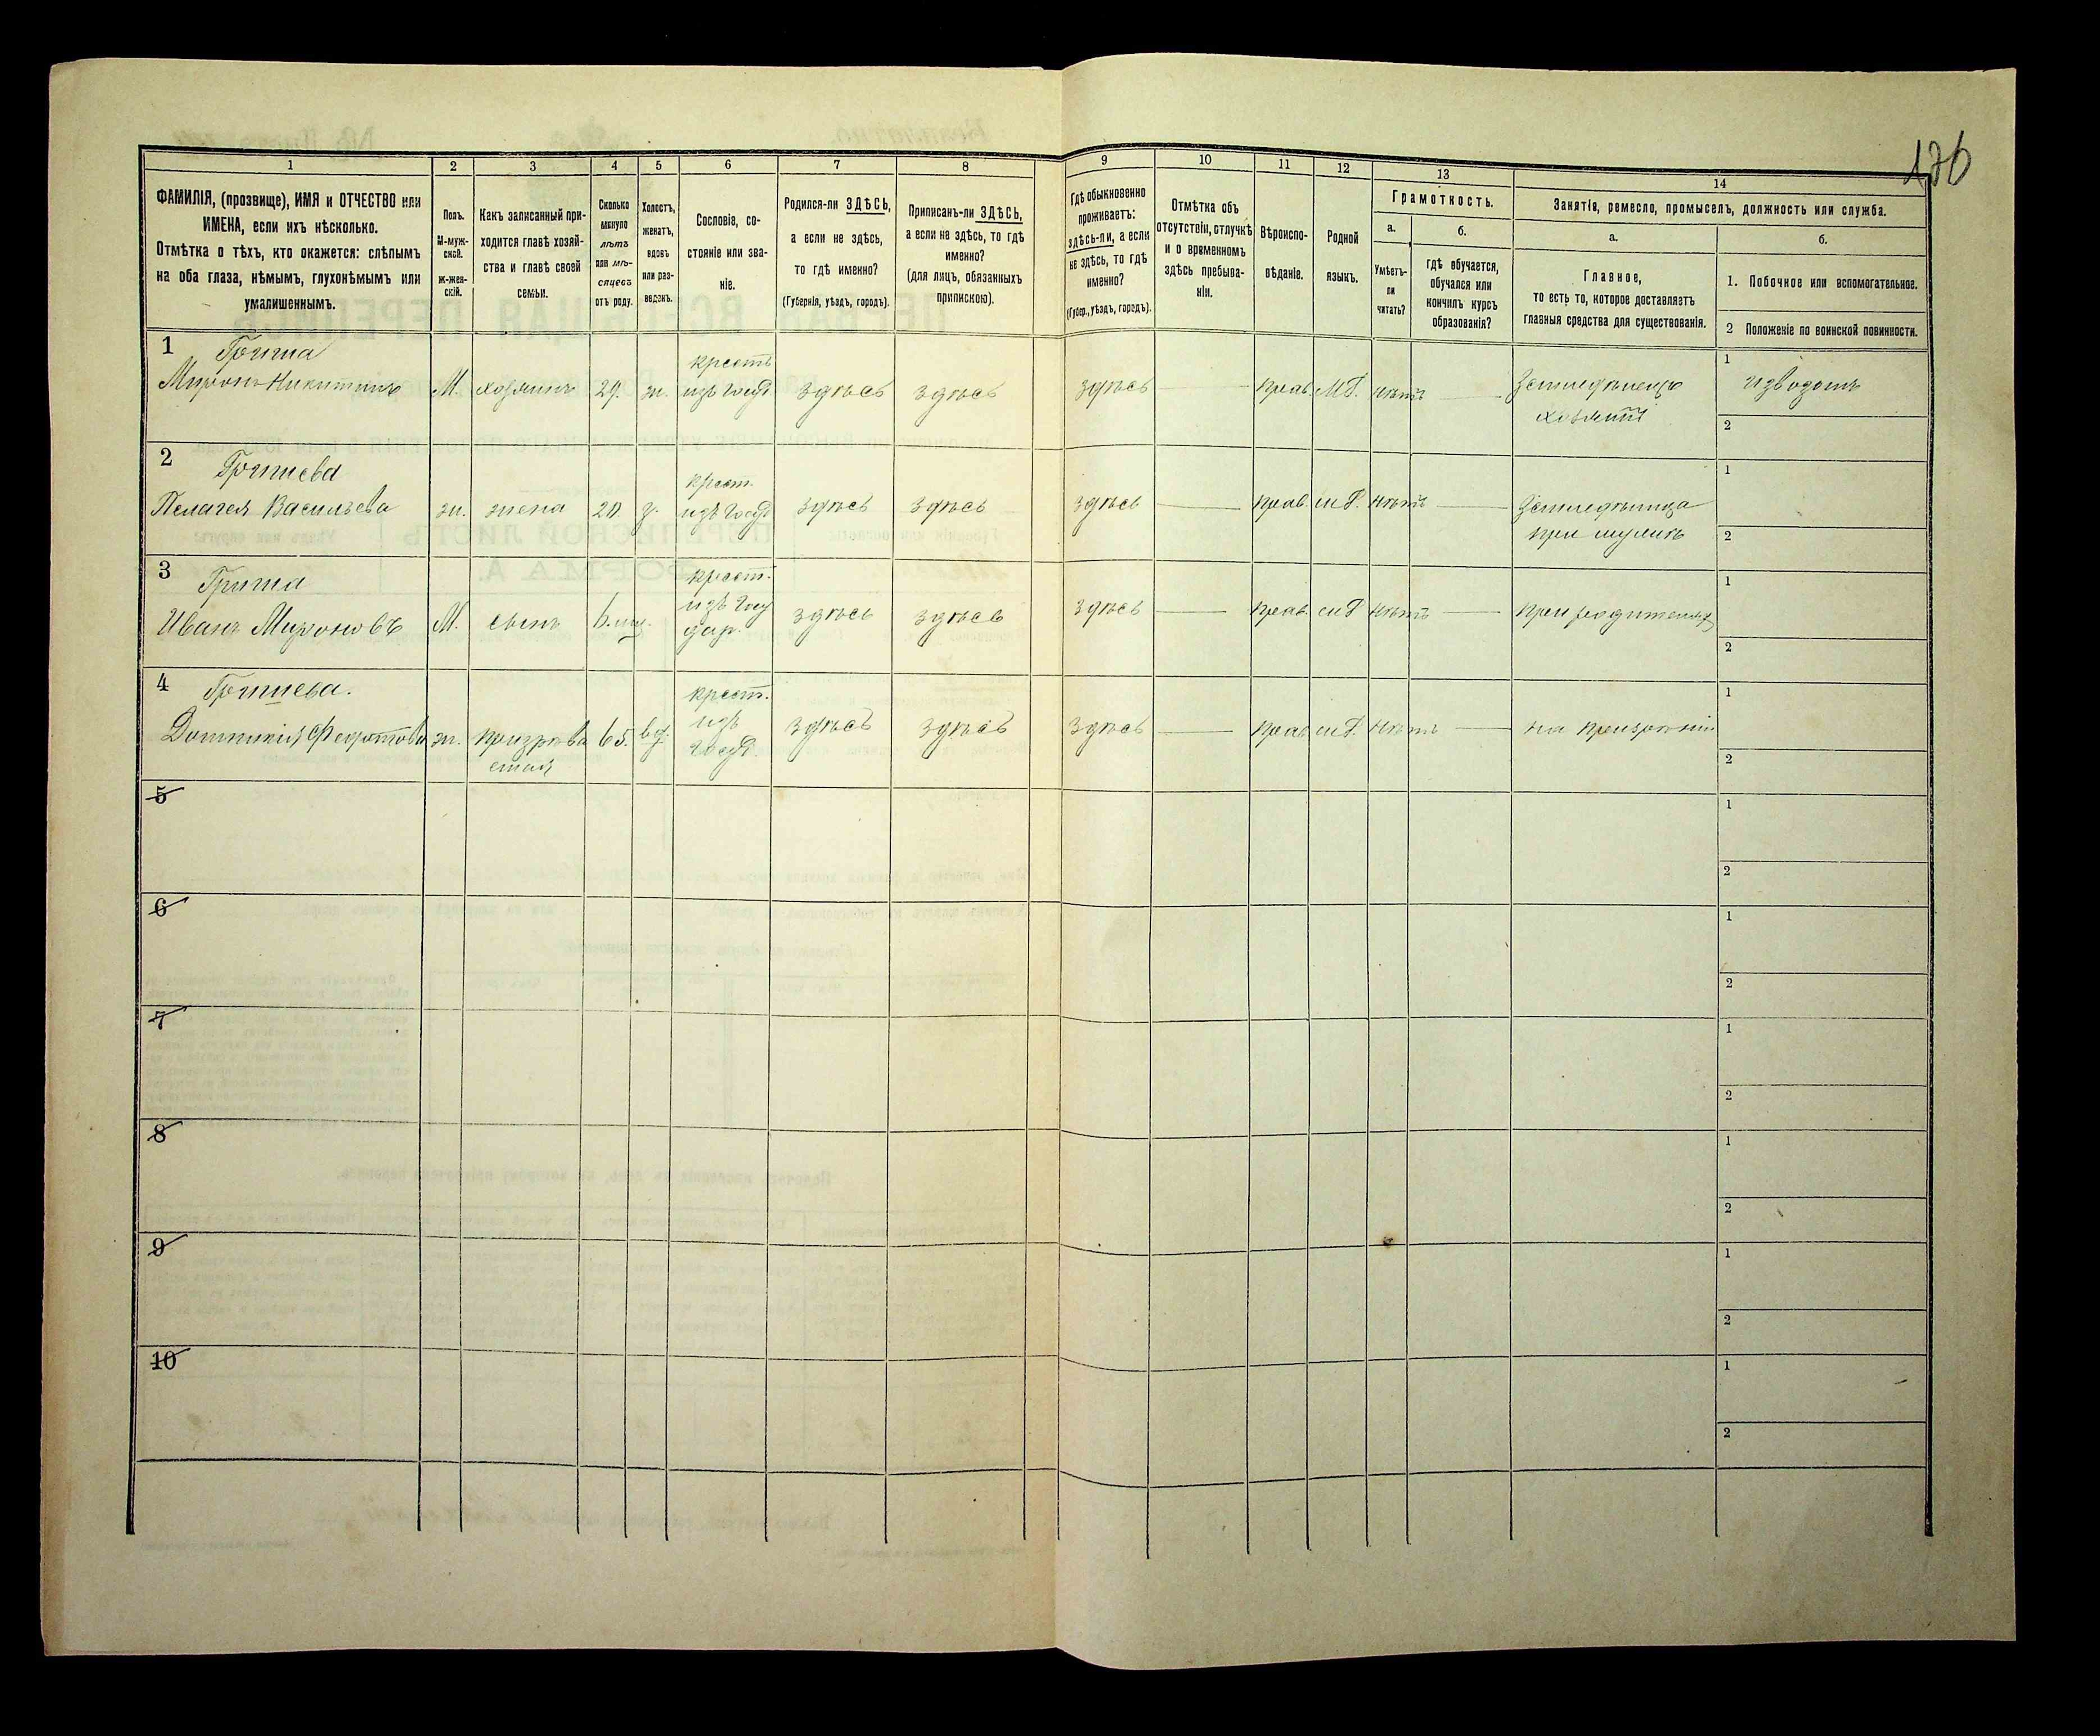 176
1
2
3
4
5
6
7
8
9
10
11
12
13
14
ФАМИЛІЯ, (прозвище), ИМЯ и ОТЧЕСТВО или
ИМЕНА, если ихъ нѣсколько.
Отмѣтка о тѣхъ, кто окажется: слѣпымъ
на оба глаза, нѣмымъ, глухонѣмымъ или
умалишеннымъ.
Полъ.
М-муж-
ской.
Ж-жен-
скій.
Какъ записанный при-
ходится главѣ хозяй-
ства и главѣ своей
семьи.
Сколько
минуло
лѣтъ
или мѣ-
сяцевъ
отъ роду.
Холостъ,
женатъ,
вдовъ
или раз-
веденъ.
Сословіе, со-
стояніе или зва-
ніе.
Родился-ли ЗДѢСЬ,
а если не здѣсь,
то гдѣ именно?
(Губернія, уѣздъ, городъ).
Приписанъ-ли ЗДѢСЬ,
а если не здѣсь, то гдѣ
именно?
(для лицъ, обязанныхъ
припискою).
Гдѣ обыкновенно
проживаетъ:
здѣсь-ли, а если
не здѣсь, то гдѣ
именно?
(Губер., уѣздъ, городъ).
Отмѣтка объ
отсутствіи, отлучкѣ
и о временномъ
здѣсь пребыва-
ніи.
Вѣроиспо-
вѣданіе.
Родной
языкъ.
Грамотность.
а.
Умѣетъ-
ли
читать?
б.
Гдѣ обучается,
обучался или
кончилъ курсъ
образованія?
Занятія, ремесло, промыселъ, должность или служба.
а.
Главное,
то есть то, которое доставляетъ
главныя средства для существованія.
б.
1. Побочное или вспомогательное.
2 Положеніе по воинской повинности.
1 Гриша
Миронъ Никитинъ М. хозяинъ 29. ж. крестъ изъ госуд. здѣсь здѣсь здѣсь прав. М.Р. нѣтъ Земледѣлецъ
хозяинъ
1 извозомъ
2
2 Гришева
Пелагея Васильева ж. жена 20 з. крест. изъ госуд. здѣсь здѣсь здѣсь прав. м.Р. нѣтъ
при мужѣ
1
2
3 Гриша
Иванъ Мироновъ М. сынъ 6 мец. крест. изъ госу
дар. здѣсь здѣсь здѣсь прав. м.Р нѣтъ при родителяхъ
1
2
4 Гришева.
Домникія Федотова ж. призрѣва
емая 65. вд. крест.
изъ
госуд. здѣсь здѣсь здѣсь прав м.Р. нѣтъ на призрѣніи
1
2
5
1
2
6
1
2
7
1
2
8
1
2
9
1
2
10
1
2